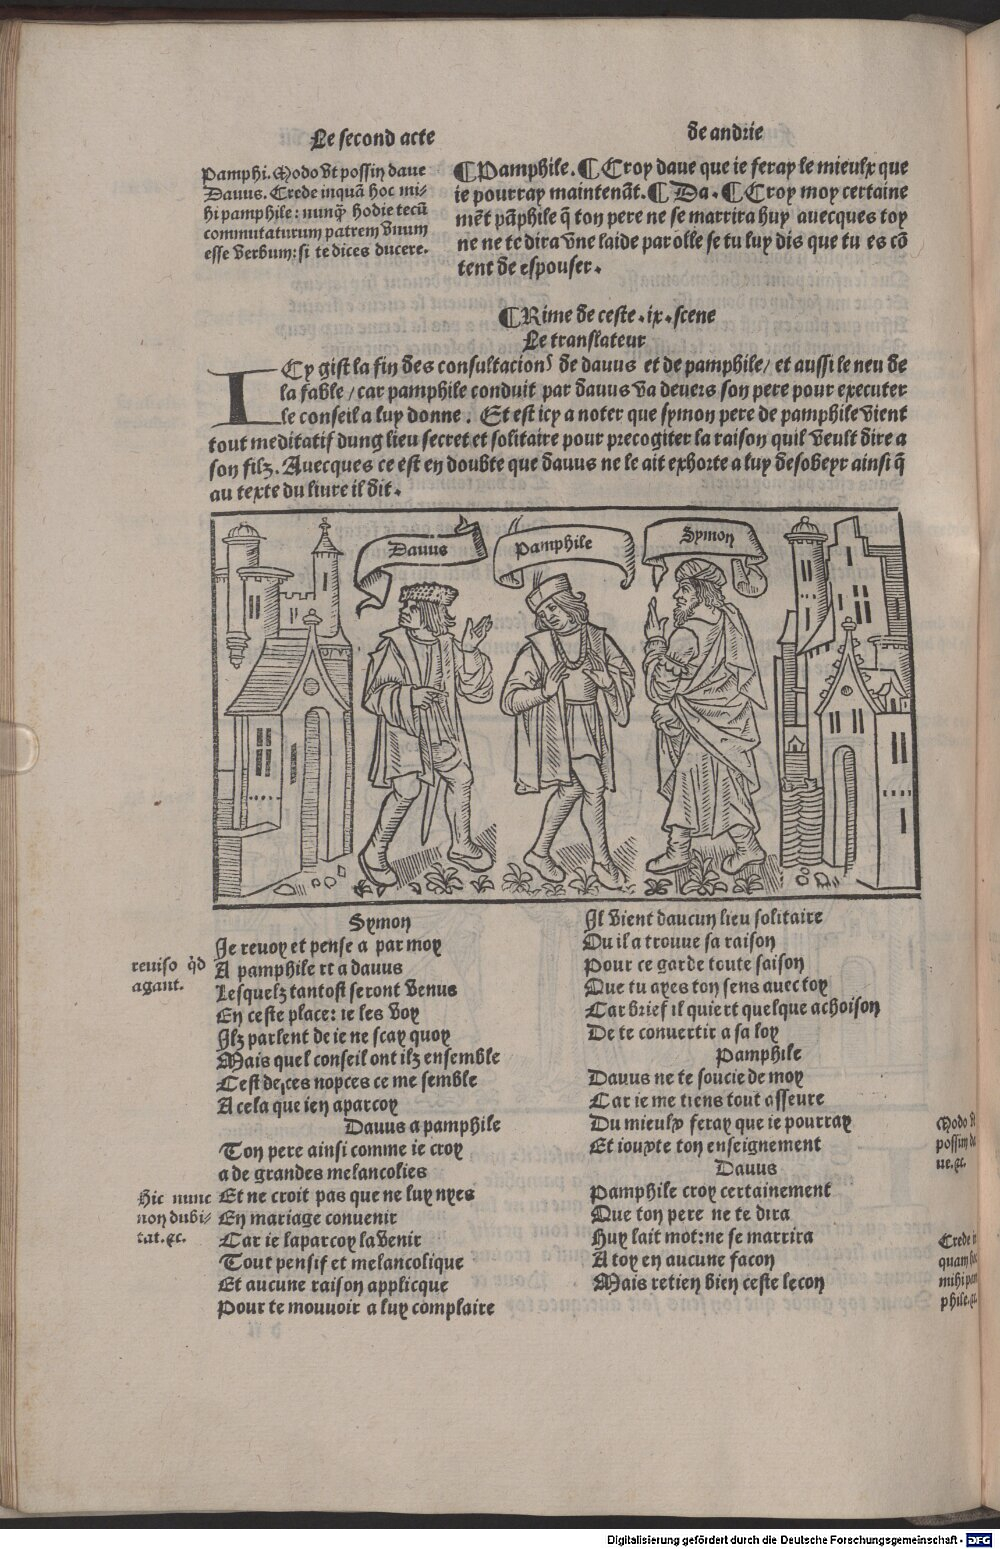 Le second acte
de andrie
Pamphi. Modo vt possin daue
Dauus. Crede inquã hoc mi-
hi pamphile: nunq̃ hodie tecũ
commutaturum patrem vnum
esse verbum: si te dices ducere.
¶Pamphile. ¶Croy daue que ie feray le mieulx que
ie pourray maintenãt. ¶Da. ¶Croy moy certaine
mẽt pãphile q̃ ton pere ne se marrira huy auecques toy
ne ne te dira vne laide parolle se tu luy dis que tu es cõ
tent de espouser.
¶Rime de ceste .ix. scene
Le translateur
ICy gist la fin des consultacions de dauus et de pamphile/ et aussi le neu de
la fable/ car pamphile conduit par dauus va deuers son pere pour executer
le conseil a luy donne. Et est icy a noter que symon pere de pamphile vient
tout meditatif dung lieu secret et solitaire pour precogiter la raison quil veult dire a
son filz. Auecques ce est en doubte que dauus ne le ait exhorte a luy desobeyr ainsi q̃
au texte du liure il dit.
Dauus
Pamphile
Symon
Symon
Je reuoy et pense a par moy
reuiso q̇d
agant.
A pamphile rt a dauus
Lesquelz tantost seront venus
En ceste place: ie les voy
Ilz parlent de ie ne scay quoy
Mais quel conseil ont ilz ensemble
Cest de ces nopces ce me semble
A cela que ien aparcoy
Dauus a pamphile
Ton pere ainsi comme ie croy
a de grandes melancolies
Hic nunc
non dubi-
tat.⁊c.
Et ne croit pas que ne luy nyes
En mariage conuenir
Car ie laparcoy la venir
Tout pensif et melancolique
Et aucune raison applicque
Pour te mouuoir a luy complaire
Il vient daucun lieu solitaire
Ou il a trouue sa raison
Pour ce garde toute saison
Que tu ayes ton sens auec toy
Car brief il quiert quelque achoison
De te conuertir a sa loy
Pamphile
Dauus ne te soucie de moy
Car ie me tiens tout asseure
Du mieulx feray que ie pourray
Et iouxte ton enseignement
Modo vt
possim da
ue.⁊c.
Dauus
Pamphile croy certainement
Que ton pere ne te dira
Huy lait mot: ne se marrira
A toy en aucune facon
Mais retien bien ceste lecon
Crede in
quam hoc
mihi pam
phile.⁊c.
Digitalisierung gefördert durch die Deutsche Forschungsgemeinschaft - DFG